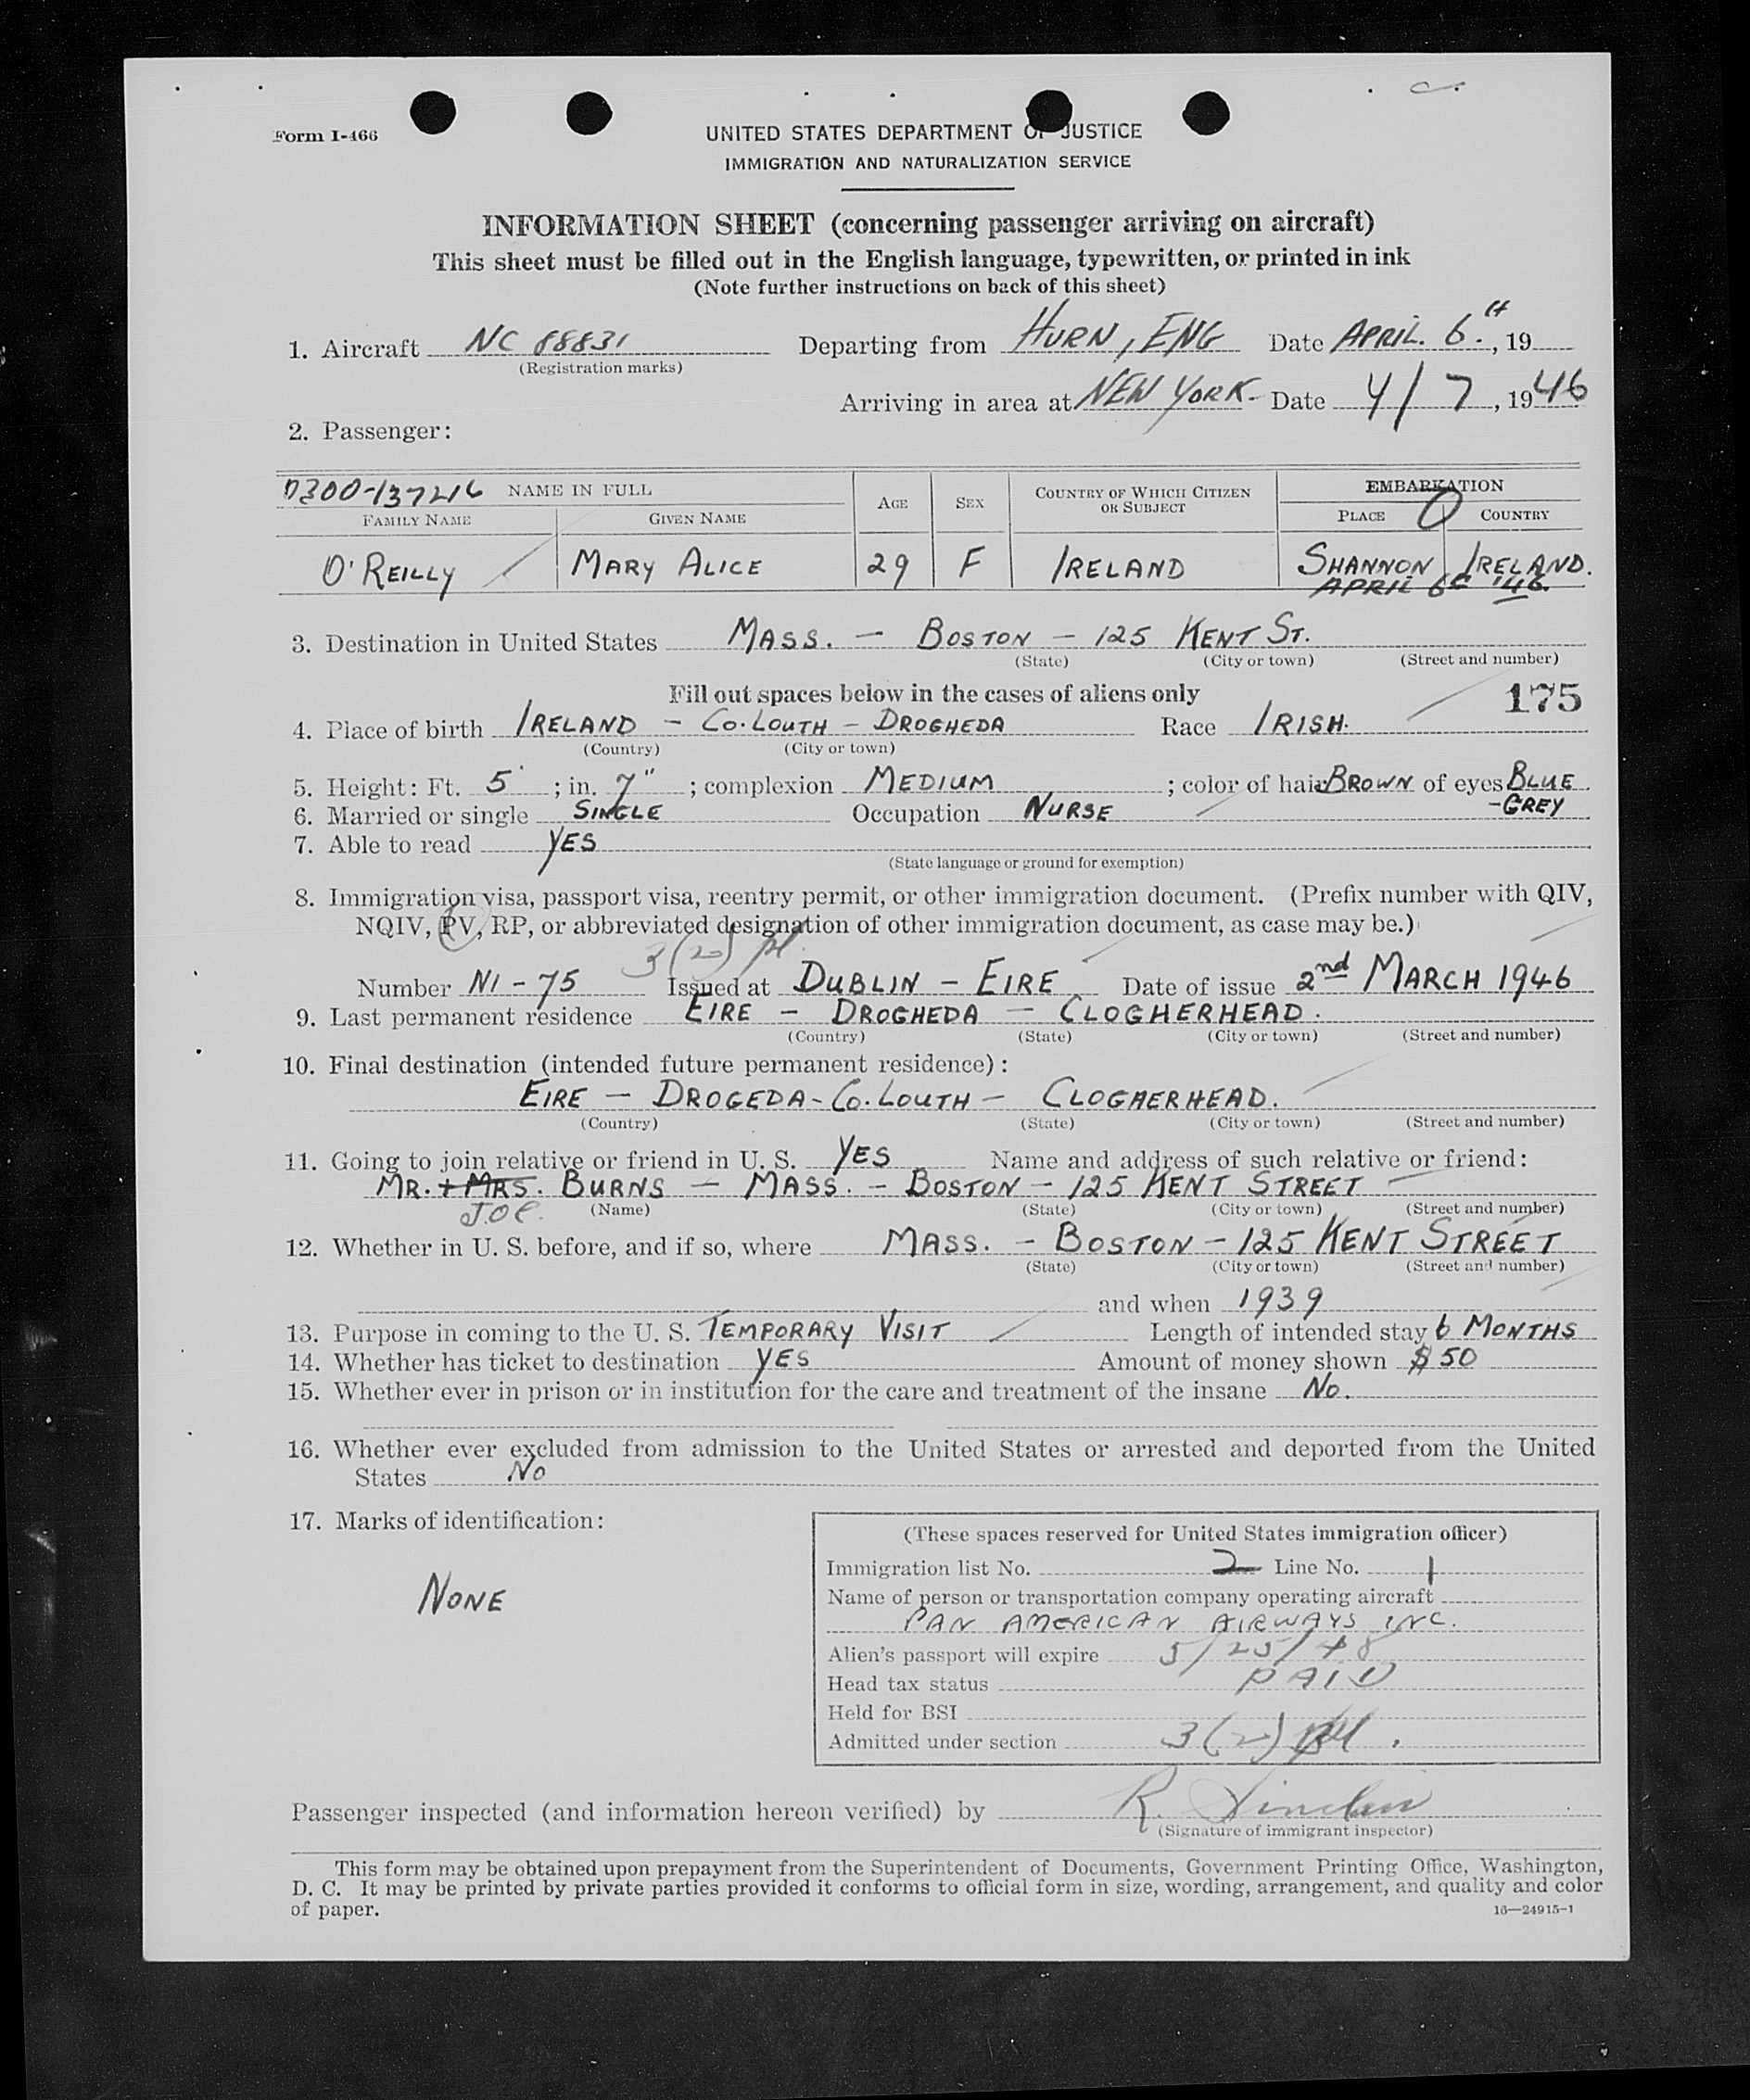 Form I-466
UNITED STATES DEPARTMENT OF JUSTICE
IMMIGRATION AND NATURALIZATION SERVICE
INFORMATION SHEET (concerning passenger arriving on aircraft)
This sheet must be filled out in the English language, typewritten, or printed in ink
(Note further instructions on back of this sheet)
1. Aircraft NC 88831 Departing from HURN, ENG Date APRIL. 6.th, 19
(Registration marks)
Arriving in area at NEW YORK- Date 4/7, 1946
2. Passenger:
0300-137216 NAME IN FULL AGE SEX COUNTRY OF WHICH CITIZEN OR SUBJECT EMBARKATION
FAMILY NAME GIVEN NAME PLACE COUNTRY
O'REILLY MARY ALICE 29 F IRELAND SHANNON IRELAND.
APRIL 6 '46.
3. Destination in United States MASS. — BOSTON — 125 KENT ST.
(State) (City or town) (Street and number)
Fill out spaces below in the cases of aliens only 175
4. Place of birth IRELAND - CO. LOUTH - DROGHEDA Race IRISH.
(Country) (City or town)
5. Height: Ft. 5' ; in. 7" ; complexion MEDIUM ; color of hair BROWN of eyes BLUE
6. Married or single SINGLE Occupation NURSE -GREY
7. Able to read YES
(State language or ground for exemption)
8. Immigration visa, passport visa, reentry permit, or other immigration document. (Prefix number with QIV,
NQIV, PV, RP, or abbreviated designation of other immigration document, as case may be.)
3(2)
Number NI - 75 Issued at DUBLIN - EIRE Date of issue 2nd MARCH 1946
9. Last permanent residence EIRE - DROGHEDA — CLOGHERHEAD.
(Country) (State) (City or town) (Street and number)
10. Final destination (intended future permanent residence):
EIRE — DROGEDA - CO. LOUTH — CLOGHERHEAD.
(Country) (State) (City or town) (Street and number)
11. Going to join relative or friend in U. S. YES Name and address of such relative or friend:
MR. + MRS. BURNS — MASS. - BOSTON - 125 KENT STREET
JOE. (Name) (State) (City or town) (Street and number)
12. Whether in U. S. before, and if so, where MASS. - BOSTON - 125 KENT STREET
(State) (City or town) (Street and number)
and when 1939
13. Purpose in coming to the U. S. TEMPORARY VISIT Length of intended stay 6 MONTHS
14. Whether has ticket to destination YES Amount of money shown $50
15. Whether ever in prison or in institution for the care and treatment of the insane NO.
16. Whether ever excluded from admission to the United States or arrested and deported from the United
States NO
17. Marks of identification:
NONE
(These spaces reserved for United States immigration officer)
Immigration list No. 2 Line No. 1
Name of person or transportation company operating aircraft
PAN AMERICAN AIRWAYS INC.
Alien's passport will expire 5/25/48
Head tax status PAID
Held for BSI
Admitted under section 3(2)
Passenger inspected (and information hereon verified) by R. Sinclair
(Signature of immigrant inspector)
This form may be obtained upon prepayment from the Superintendent of Documents, Government Printing Office, Washington,
D. C. It may be printed by private parties provided it conforms to official form in size, wording, arrangement, and quality and color
of paper. 16—24915-1